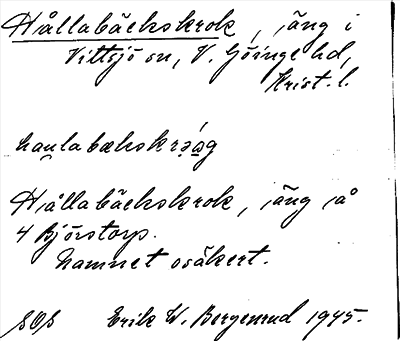 Hållabäckskrok, äng i
Vittsjö sn, V. Göinge hd,
Krist. l.
haulabækskrǝág
Hållabäckskrok, äng på
4 Björstorp.
Namnet osäkert.
SOS Erik W. Bergenrud 1945.